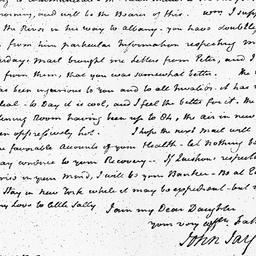 morning, and will be the Bearer of this.
the River in his way to albany. you have doubtless
from him particular Information respecting my
day's mail brought me Letters from Peter, and I
from them, that you was somewhat better. The
has been injurious to you and to all Invalids. it has
To Day it is cool, and I feel the better for it. the
Room having been up to 86, the air in new
oppressively hot. I hope the next mail will
favorable accounts of your Health. Let Nothing be
conduce to your Recovery. If
in your Mind, I will be your Banker.
Stay in New York while it may be expedient. but
my Love to little Sally
I am my Dear Daughter
your very affte. Fath
John Jay